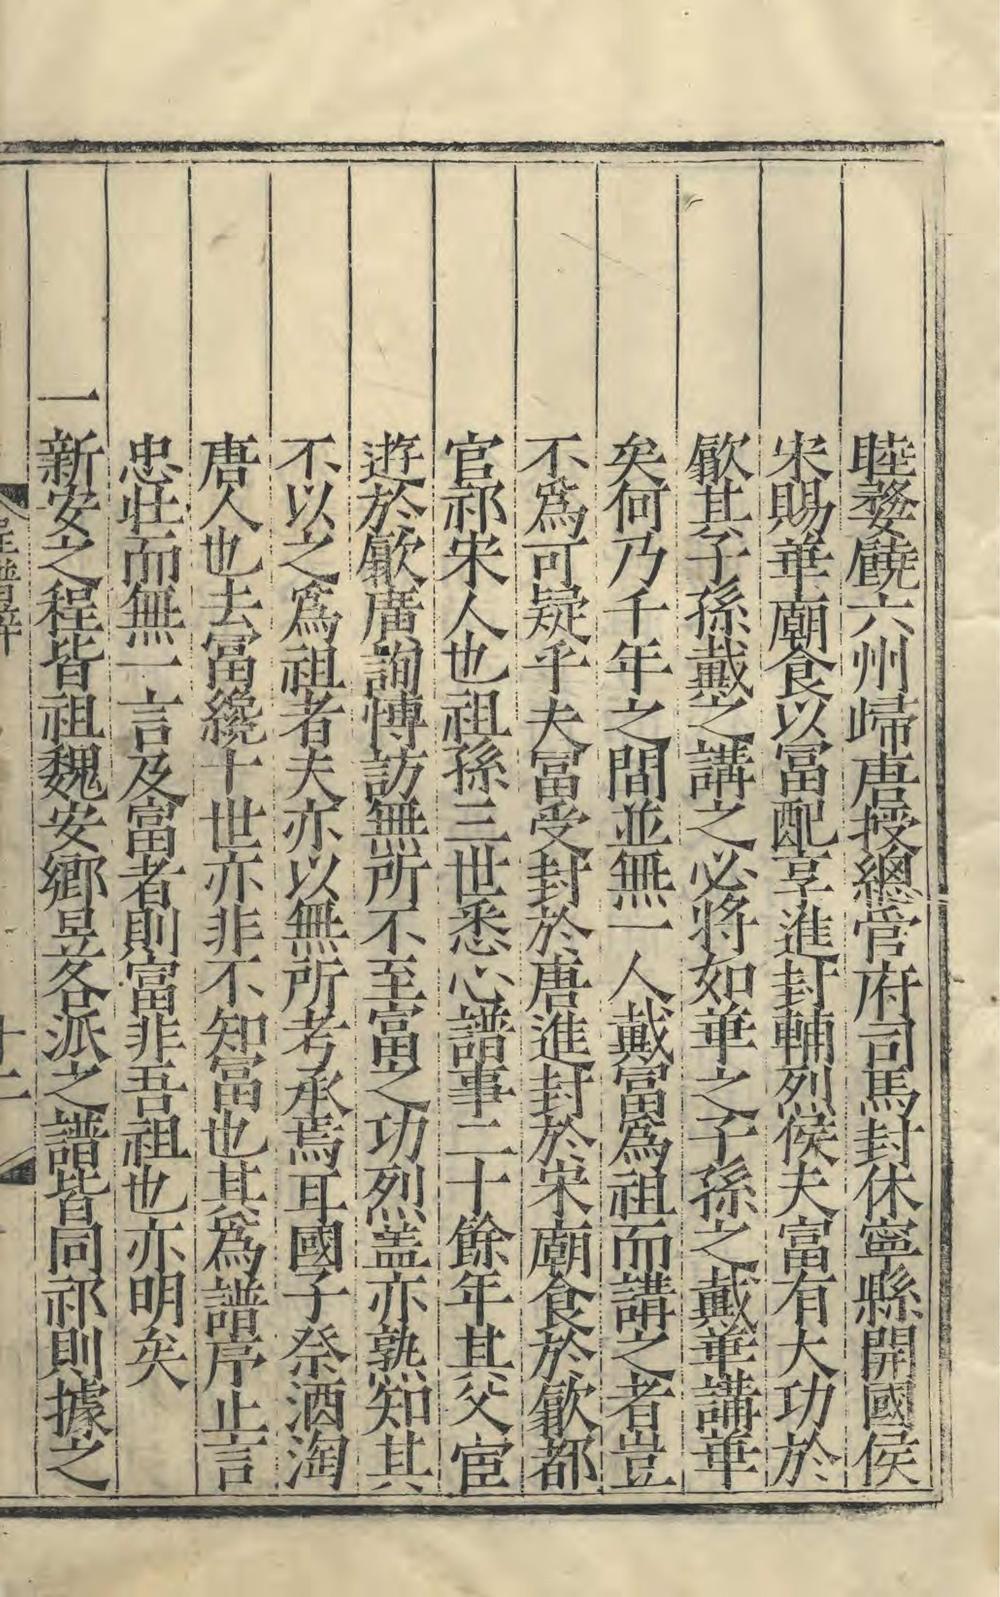 睦婺饒六州歸唐授總管府司馬封休寧縣開國侯
宋賜華廟食以富配享進封輔烈侯夫富有大功於
歙其子孫戴之講之必將如華之子孫之戴華講華
矣何乃千年之間並無一人戴富為祖而講之者豈
不為可疑乎夫富受封於唐進封於宋廟食於歙都
官祁宋人也祖孫三世悉心譜事二十餘年其父宦
遊於歙廣詢博訪無所不至富之功烈蓋亦熟知其
不以之為祖者夫亦以無所考承焉耳國子祭酒淘
唐人也去富纔十世亦非不知富也其為譜序止言
忠壯而無一言及富者則富非吾祖也亦明矣
一新安之程皆祖魏安鄉昱各派之譜皆同祁則據之
程譜辟
十二